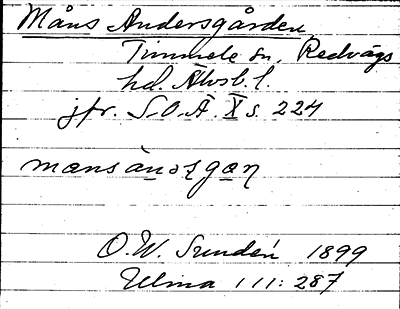 Måns Andersgården,
Timmele sn, Redvägs
hd. Älvsb. l.
jfr. S.O.Ä. X s. 224
mansánəzgan
O.W. Sundén 1899
Ulma 111:287